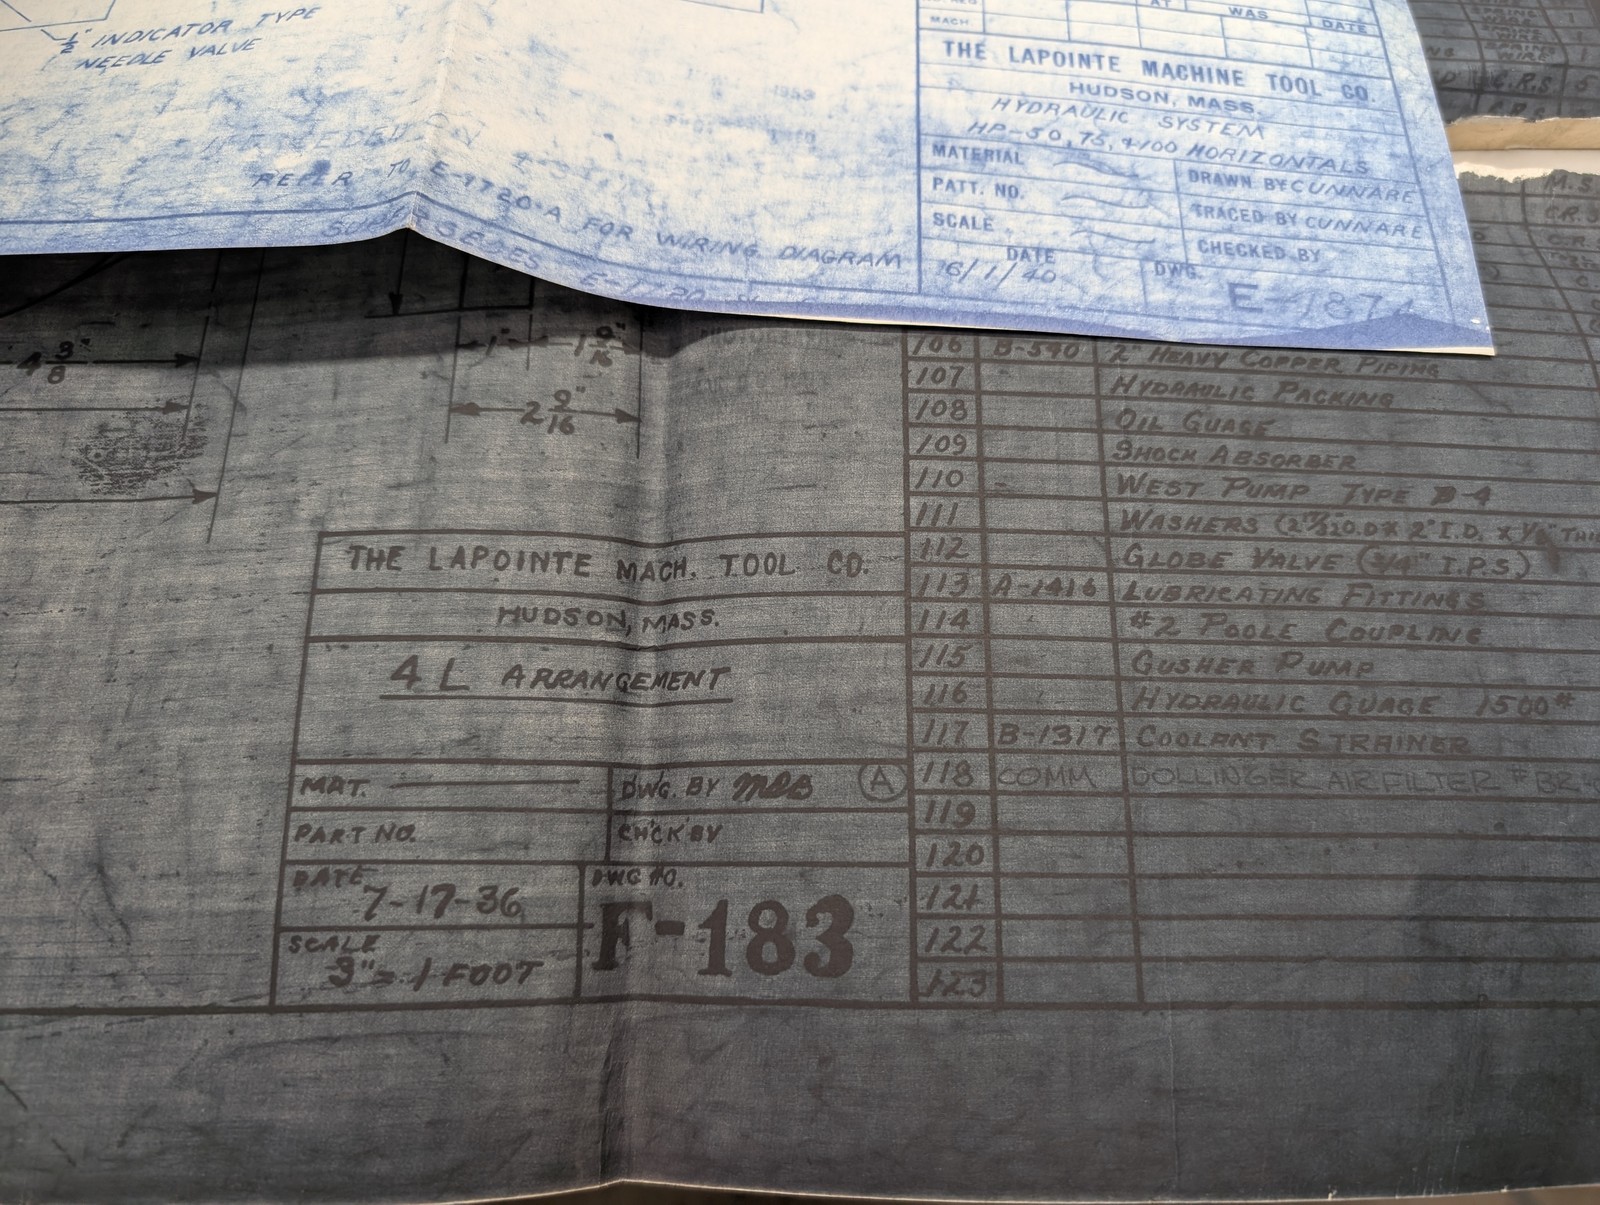 1/2" INDICATOR TYPE
NEEDLE VALVE
REFER TO E-1720-A FOR WIRING DIAGRAM
MACH
AT
WAS
DATE
THE LAPOINTE MACHINE TOOL CO.
HUDSON, MASS.
HYDRAULIC SYSTEM
HP-50, 75, & 100 HORIZONTALS
MATERIAL
DRAWN BY CUNNARE
PATT. NO.
TRACED BY CUNNARE
SCALE
CHECKED BY
DATE
6/1/40
DWG.
SPRING
WIRE
SPRING
WIRE
C.R.S
M.S.
4 3/8"
1"
1 9/16"
2 9/16"
THE LAPOINTE MACH. TOOL CO.
HUDSON, MASS.
4 L ARRANGEMENT
MAT.
DWG. BY
A
PART NO.
CH'CK'BY
DATE
7-17-36
DWG NO.
F-183
SCALE
3" = 1 FOOT
106 B-540 2" HEAVY COPPER PIPING
107 HYDRAULIC PACKING
108 OIL GUAGE
109 SHOCK ABSORBER
110 WEST PUMP TYPE
111 WASHERS 2" I.D.
112 GLOBE VALVE (3/4" I.P.S)
113 A-1416 LUBRICATING FITTINGS
114 #2 POOLE COUPLING
115 GUSHER PUMP
116 HYDRAULIC GUAGE 1500#
117 B-1317 COOLANT STRAINER
118 COMM DOLLINGER AIR FILTER
119
120
121
122
123